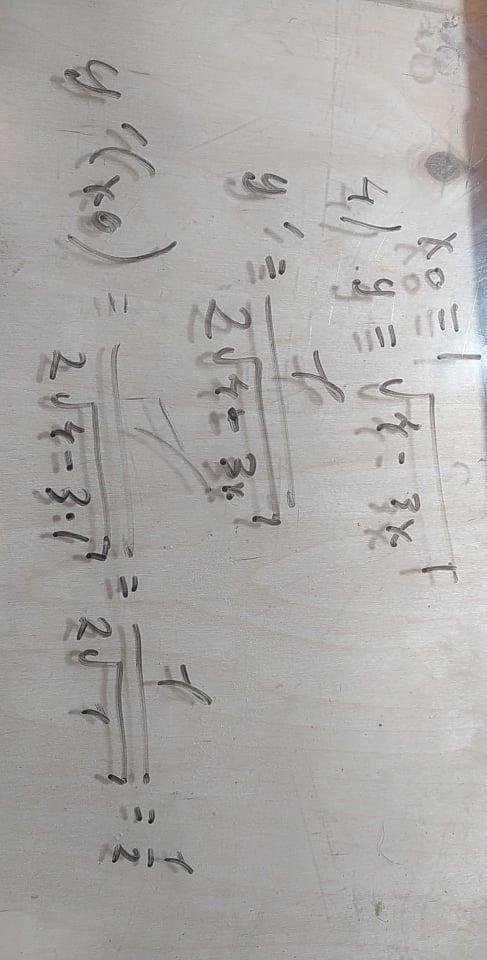 x₀ = 1
4) y = √(4 - 3x)
y' = 1/(2√(4 - 3x))
y'(x₀) = 1/(2√(4 - 3·1)) = 1/(2√1) = 1/2